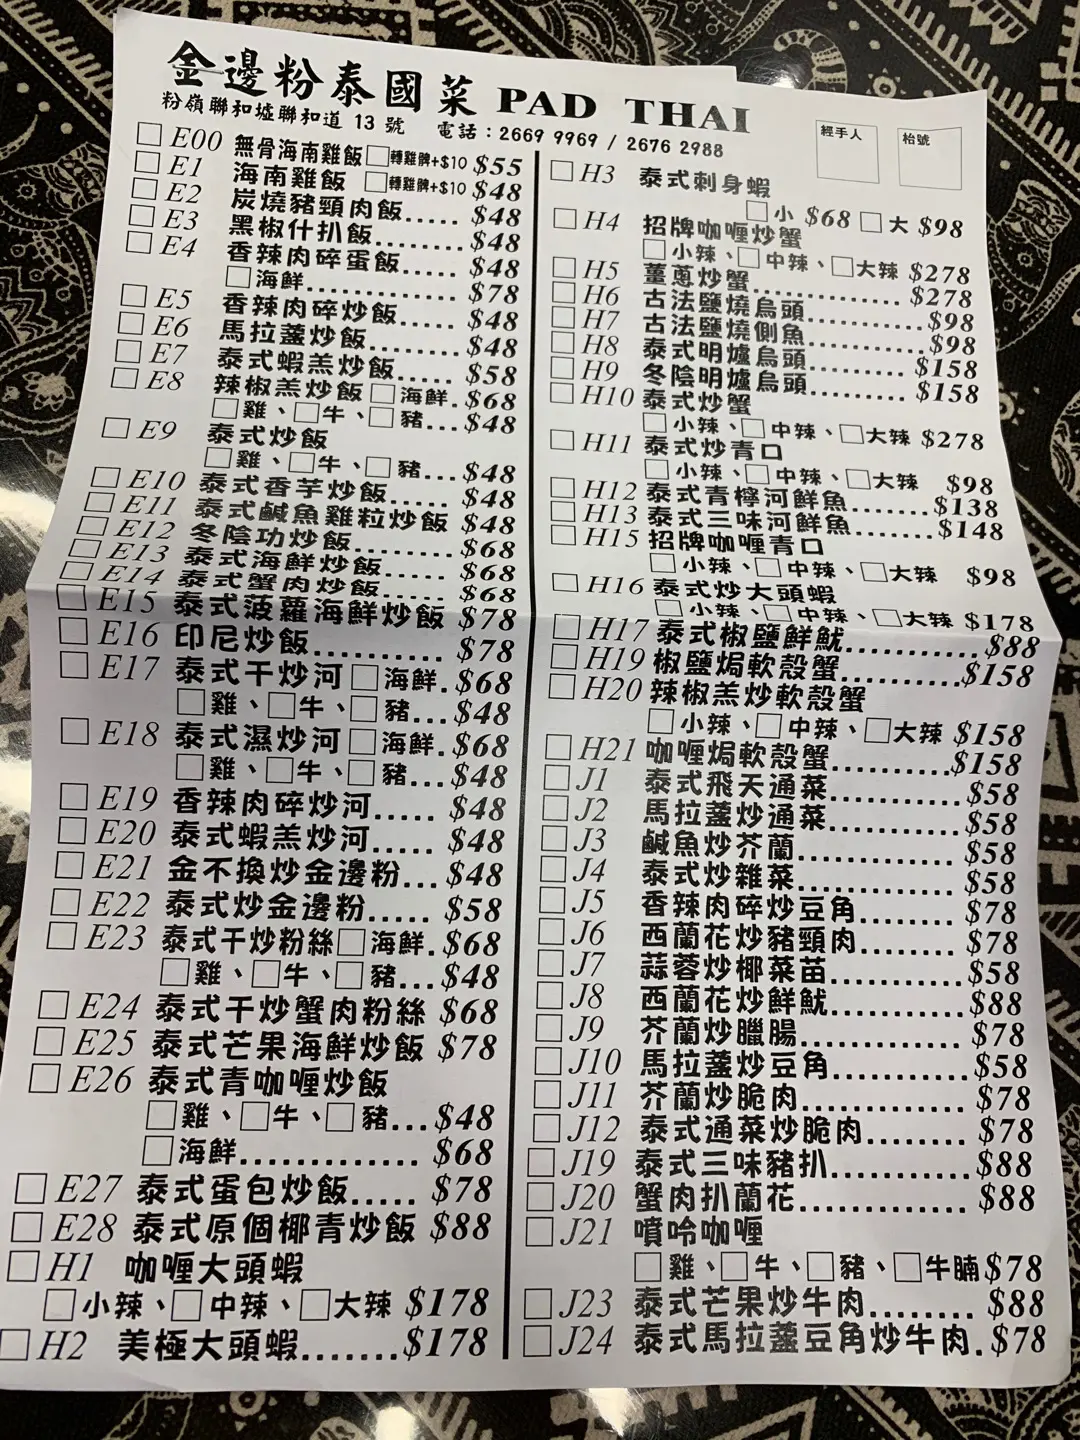 金邊粉泰國菜 PAD THAI
粉嶺聯和墟聯和道 13 號 電話：2669 9969 / 2676 2988
經手人
枱號
□ E00 無骨海南雞飯□轉雞髀+$10 $55
□ E1 海南雞飯 □轉雞髀+$10 $48
□ E2 炭燒豬頸肉飯..... $48
□ E3 黑椒什扒飯....... $48
□ E4 香辣肉碎蛋飯..... $48
□海鮮............. $78
□ E5 香辣肉碎炒飯..... $48
□ E6 馬拉盞炒飯....... $48
□ E7 泰式蝦羔炒飯..... $58
□ E8 辣椒羔炒飯□海鮮. $68
□雞、□牛、□豬... $48
□ E9 泰式炒飯
□雞、□牛、□豬... $48
□ E10 泰式香芋炒飯..... $48
□ E11 泰式鹹魚雞粒炒飯 $48
□ E12 冬陰功炒飯....... $68
□ E13 泰式海鮮炒飯..... $68
□ E14 泰式蟹肉炒飯..... $68
□ E15 泰式菠蘿海鮮炒飯 $78
□ E16 印尼炒飯.......... $78
□ E17 泰式干炒河□海鮮. $68
□雞、□牛、□豬... $48
□ E18 泰式濕炒河□海鮮. $68
□雞、□牛、□豬... $48
□ E19 香辣肉碎炒河..... $48
□ E20 泰式蝦羔炒河..... $48
□ E21 金不換炒金邊粉... $48
□ E22 泰式炒金邊粉..... $58
□ E23 泰式干炒粉絲□海鮮. $68
□雞、□牛、□豬... $48
□ E24 泰式干炒蟹肉粉絲 $68
□ E25 泰式芒果海鮮炒飯 $78
□ E26 泰式青咖喱炒飯
□雞、□牛、□豬... $48
□海鮮............. $68
□ E27 泰式蛋包炒飯..... $78
□ E28 泰式原個椰青炒飯 $88
□ H1 咖喱大頭蝦
□小辣、□中辣、□大辣 $178
□ H2 美極大頭蝦....... $178
□ H3 泰式刺身蝦
□小 $68 □大 $98
□ H4 招牌咖喱炒蟹
□小辣、□中辣、□大辣 $278
□ H5 薑蔥炒蟹............... $278
□ H6 古法鹽燒烏頭........... $98
□ H7 古法鹽燒側魚........... $98
□ H8 泰式明爐烏頭.......... $158
□ H9 冬陰明爐烏頭.......... $158
□ H10 泰式炒蟹
□小辣、□中辣、□大辣 $278
□ H11 泰式炒青口
□小辣、□中辣、□大辣 $98
□ H12 泰式青檸河鮮魚....... $138
□ H13 泰式三味河鮮魚....... $148
□ H15 招牌咖喱青口
□小辣、□中辣、□大辣 $98
□ H16 泰式炒大頭蝦
□小辣、□中辣、□大辣 $178
□ H17 泰式椒鹽鮮魷.......... $88
□ H19 椒鹽焗軟殼蟹......... $158
□ H20 辣椒羔炒軟殼蟹
□小辣、□中辣、□大辣 $158
□ H21 咖喱焗軟殼蟹......... $158
□ J1 泰式飛天通菜.......... $58
□ J2 馬拉盞炒通菜.......... $58
□ J3 鹹魚炒芥蘭............ $58
□ J4 泰式炒雜菜............ $58
□ J5 香辣肉碎炒豆角........ $78
□ J6 西蘭花炒豬頸肉........ $78
□ J7 蒜蓉炒椰菜苗.......... $58
□ J8 西蘭花炒鮮魷.......... $88
□ J9 芥蘭炒臘腸............ $78
□ J10 馬拉盞炒豆角.......... $58
□ J11 芥蘭炒脆肉............ $78
□ J12 泰式通菜炒脆肉........ $78
□ J19 泰式三味豬扒.......... $88
□ J20 蟹肉扒蘭花............ $88
□ J21 噴呤咖喱
□雞、□牛、□豬、□牛腩 $78
□ J23 泰式芒果炒牛肉........ $88
□ J24 泰式馬拉盞豆角炒牛肉. $78